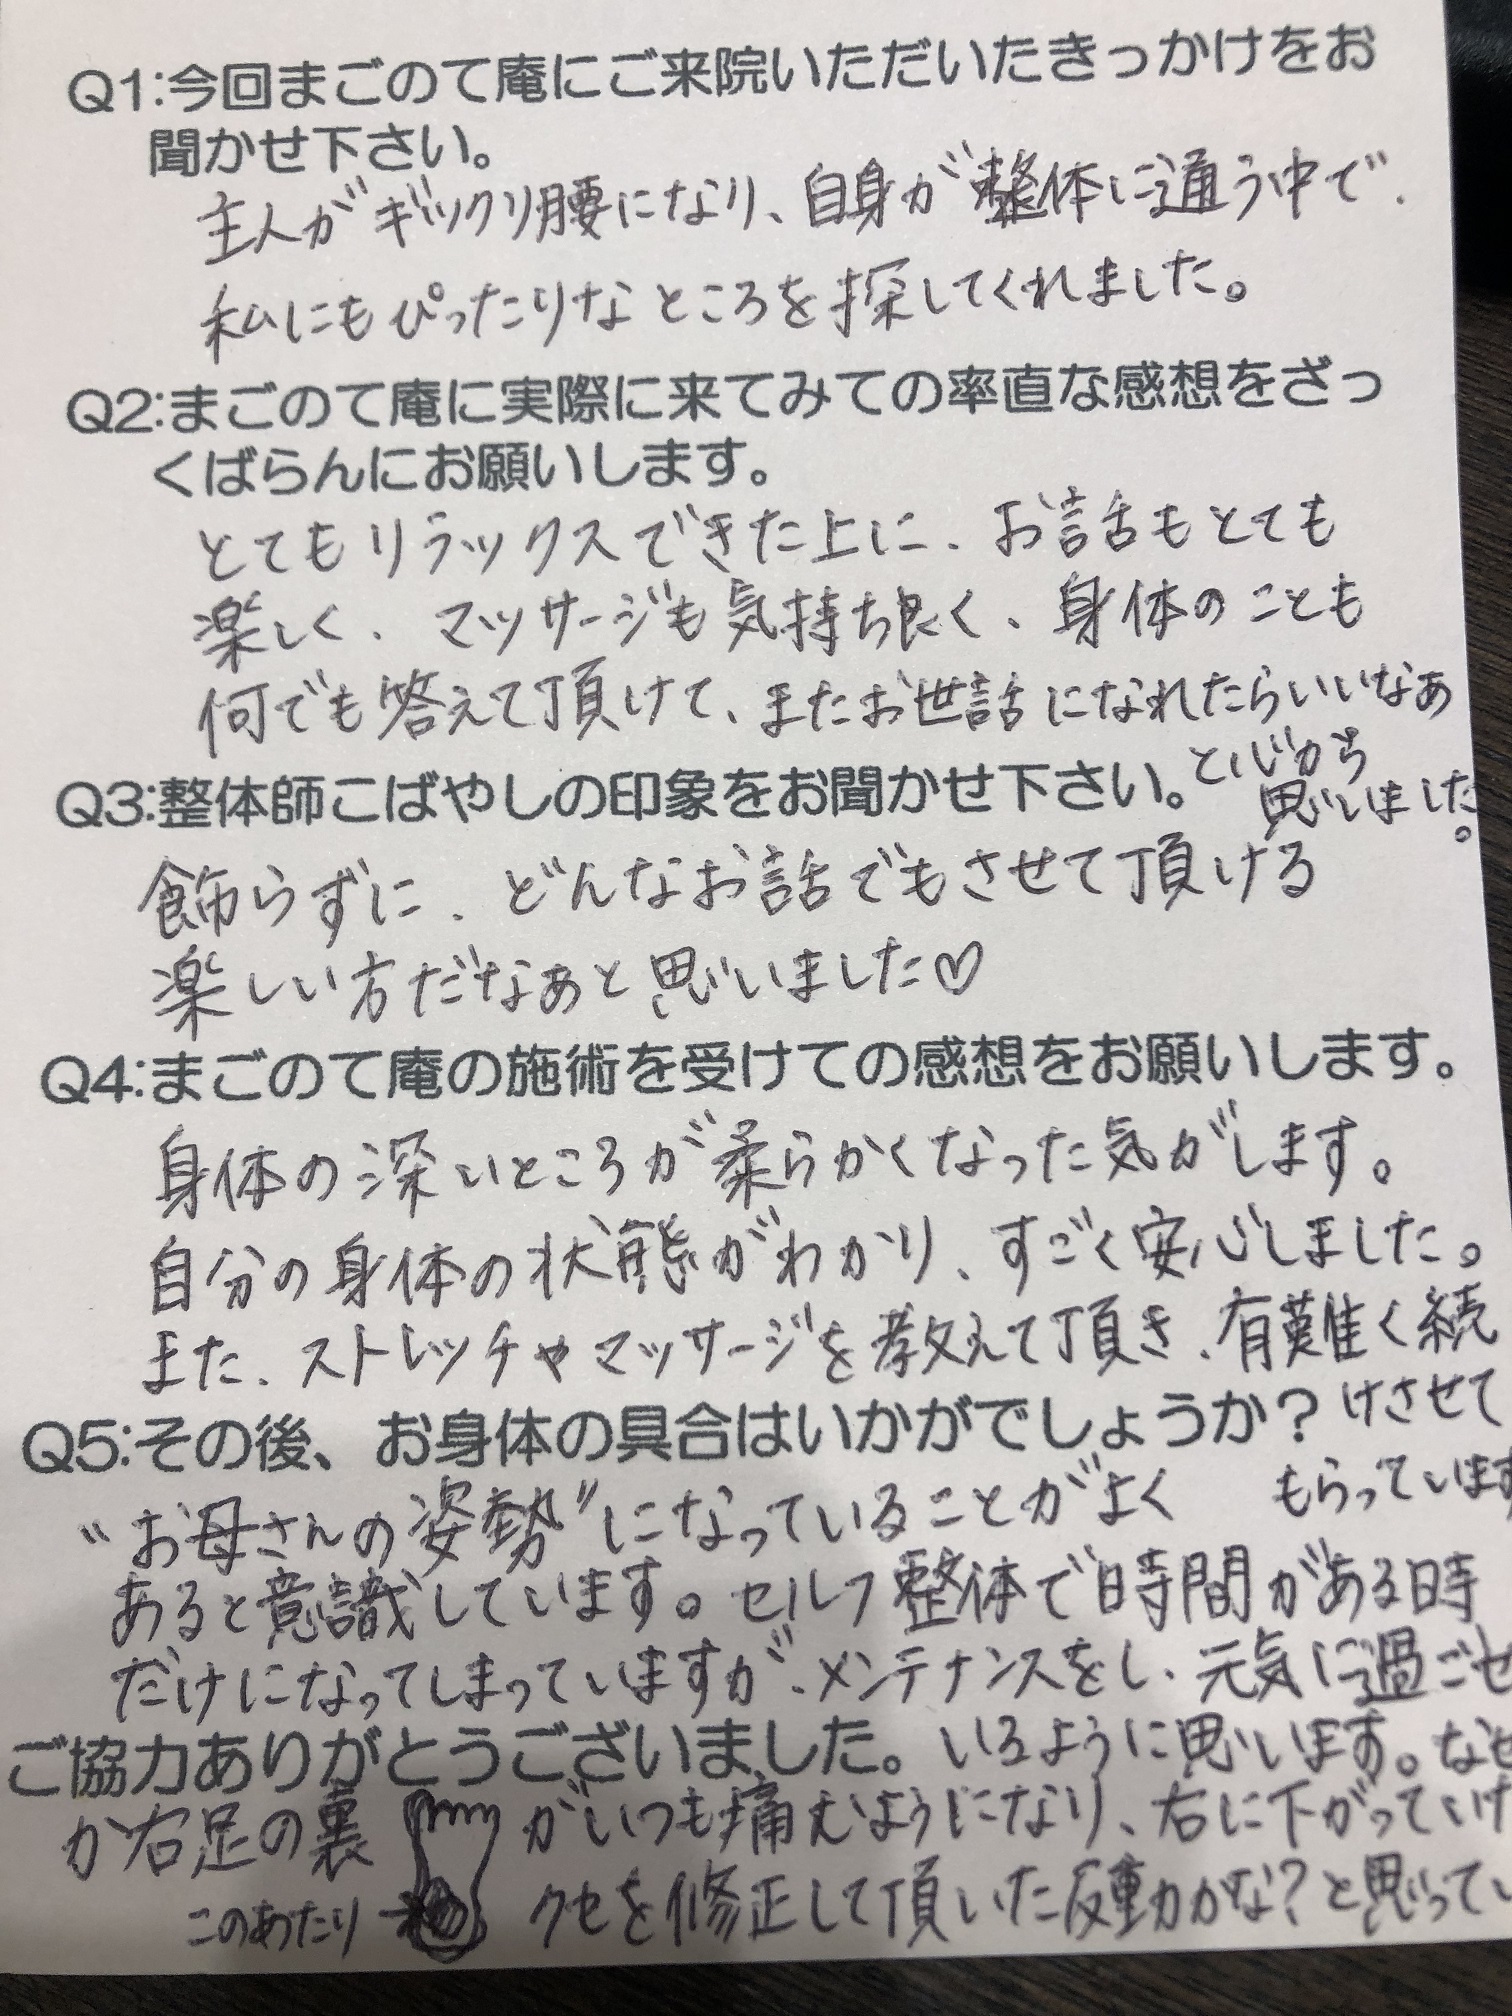 Q1:今回まごのて庵にご来院いただいたきっかけをお
聞かせ下さい。
主人がギックリ腰になり、自身が整体に通う中で、
私にもぴったりなところを探してくれました。
Q2:まごのて庵に実際に来てみての率直な感想をざっ
くばらんにお願いします。
とてもリラックスできた上に、お話もとても
楽しく、マッサージも気持ち良く、身体のことも
何でも答えて頂けて、またお世話になれたらいいなぁ
と心から
思いました。
Q3:整体師こばやしの印象をお聞かせ下さい。
飾らずに、どんなお話でもさせて頂ける
楽しい方だなぁと思いました♡
Q4:まごのて庵の施術を受けての感想をお願いします。
身体の深いところが柔らかくなった気がします。
自分の身体の状態がわかり、すごく安心しました。
また、ストレッチやマッサージを教えて頂き、有難く続
けさせて
もらっています
Q5:その後、お身体の具合はいかがでしょうか?
"お母さんの姿勢"になっていることがよく
あると意識しています。セルフ整体で時間がある時
だけになってしまっていますが、メンテナンスをし、元気に過ごせ
いるように思います。なぜ
ご協力ありがとうございました。
か右足の裏がいつも痛むようになり、右に下がっていた
このあたり
クセを修正して頂いた反動かな?と思ってい